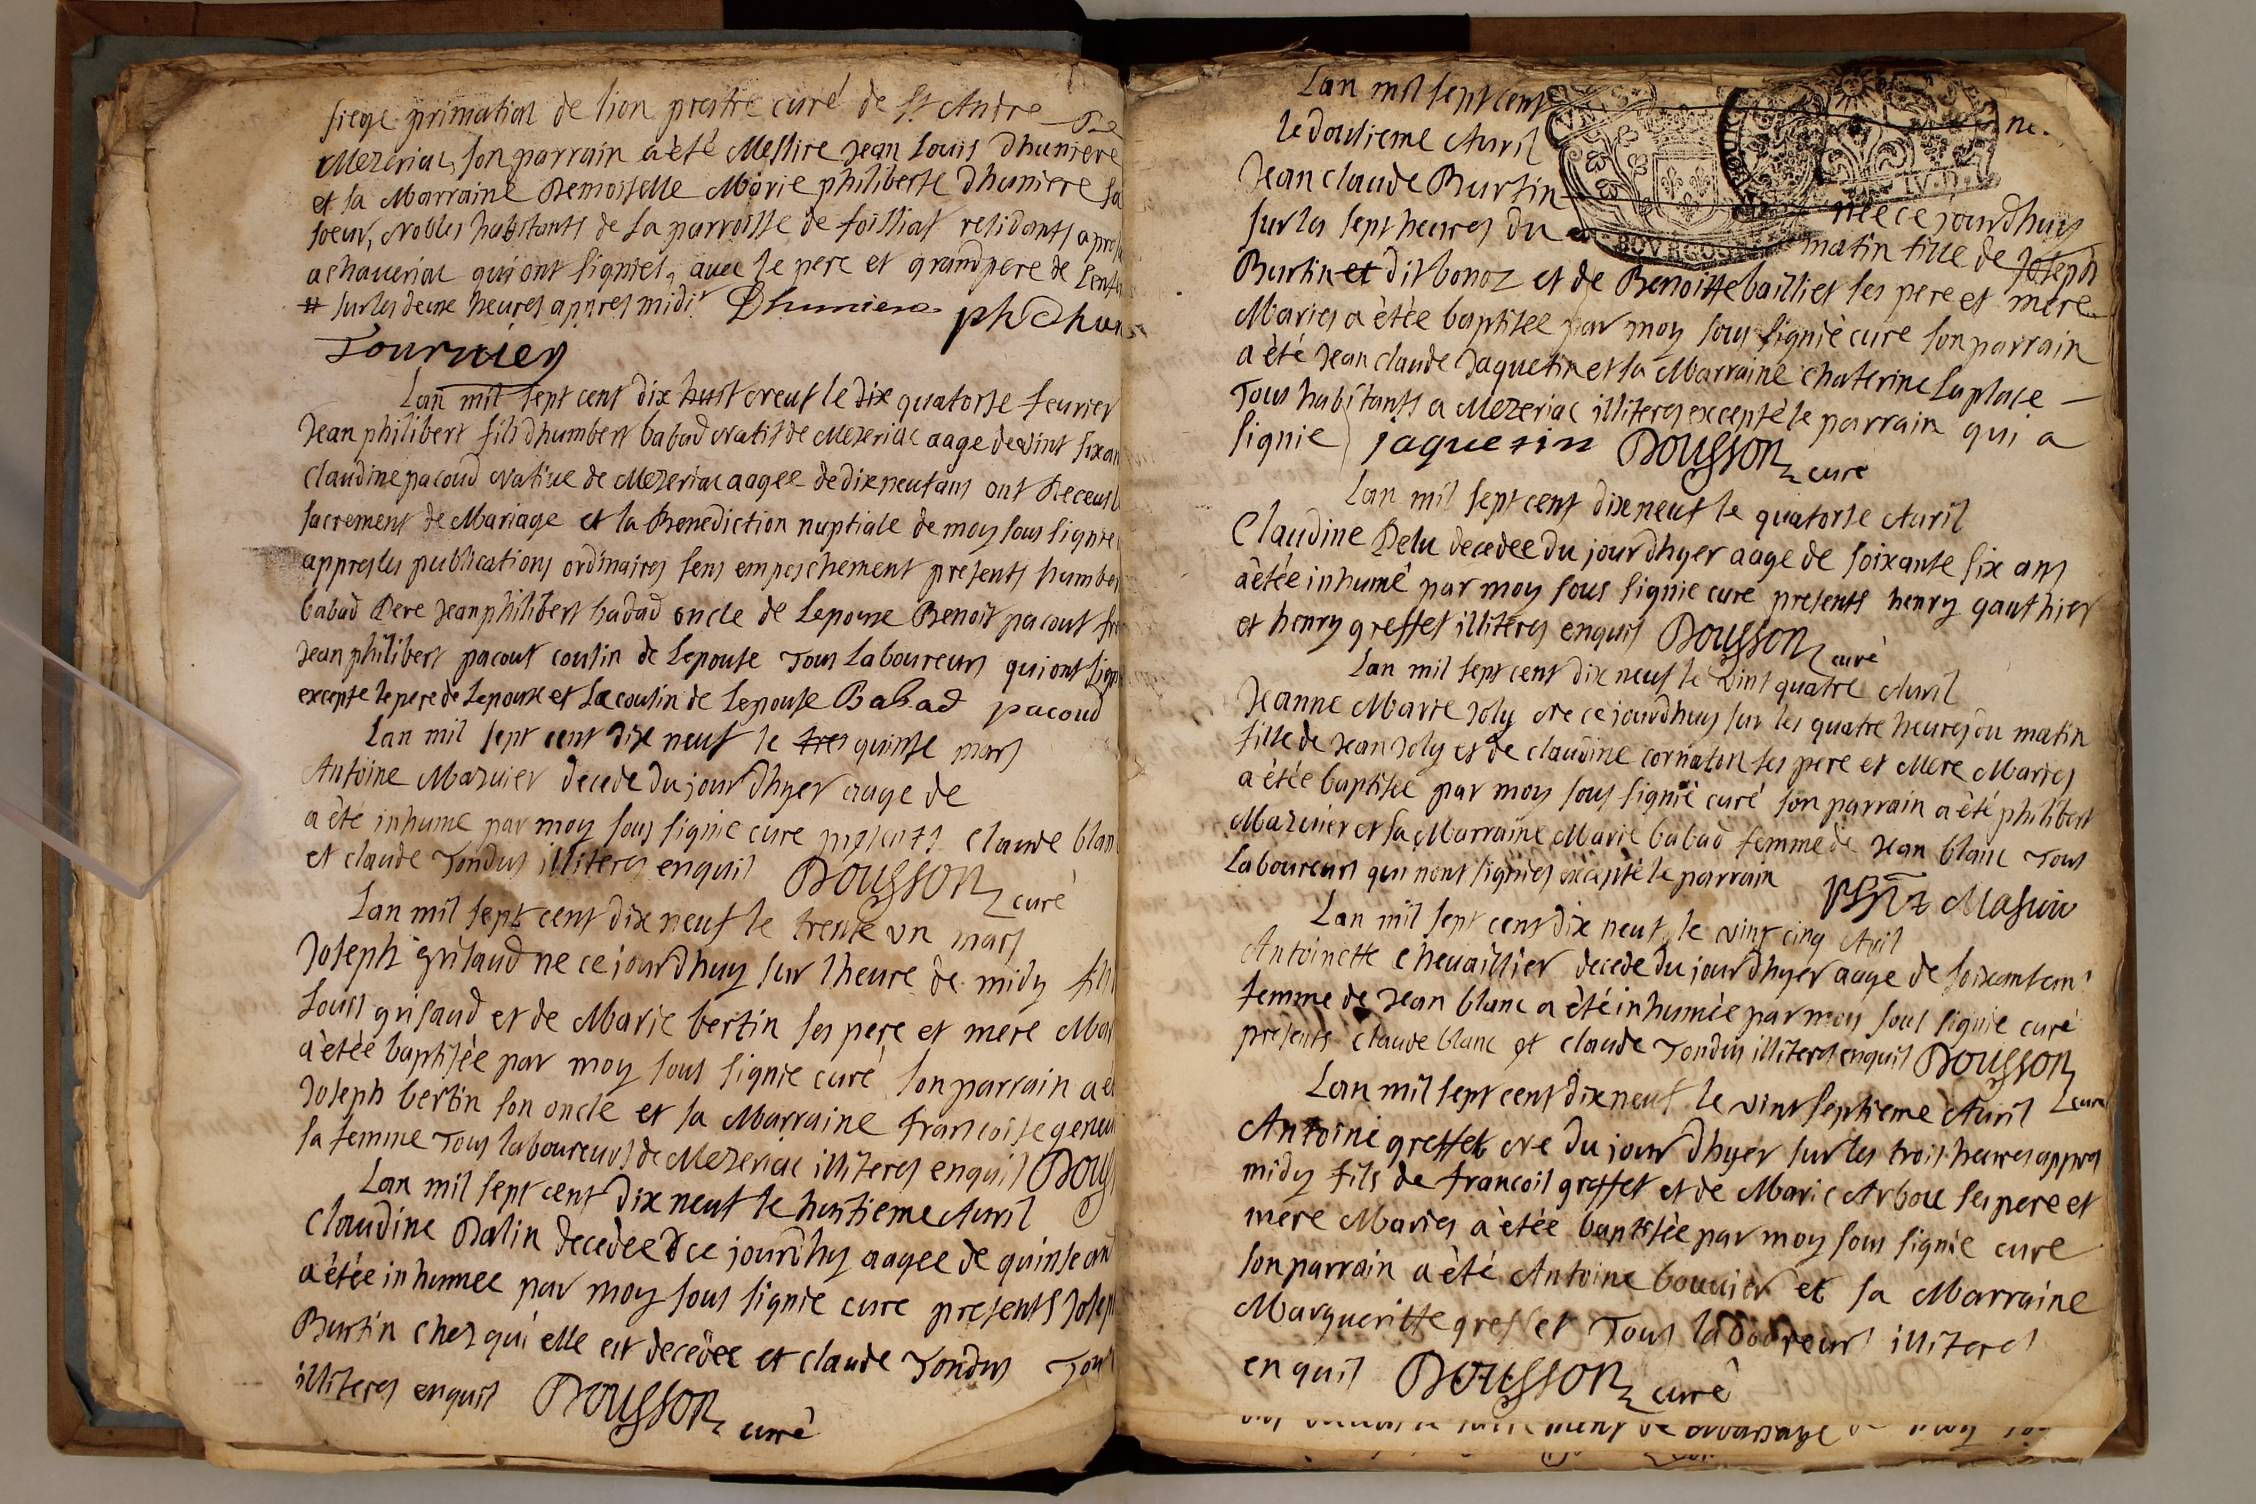 siege primatial de lion prestre curé de St Andre
Mezeriac, son parrain a èté Messire Jean Louis Dhumiere
et sa Marraine Demoiselle Marie philiberte Dhumiere sa
soeur, Nobles habitants de la parroisse de foissiat residants
a chaveriac qui ont signies, avec le pere et grandpere de
# sur les deux heures appres midi Dhumiere
Tournier
Lan mil sept cent dix huit neuf le dix quatorse fevrier
Jean philibert fils dhumbert babad Natif de Mezeriac aage de vint six
Claudine pacoud Native de Mezeriac aagee de dix neuf ans ont Receus
sacrement de Mariage et la Benediction nuptiale de moy sous signie
appres les publications ordinaires sens empeschement presents humber
babad Pere Jean philibert badad oncle de Lepoux Benoit pacout
Jean philibert pacout cousin de Lepouse Tous Laboureurs qui ont
excepte le pere de Lepoux et Le cousin de Lepouse Babad pacoud
Lan mil sept cent dix neuf le tres quinse mars
Antoine Mazuier decede du jour dhyer aage de
a èté inhume par moy sous signie cure presents claude blan
et claude Tondus illiteres enquis Dousson curé
Lan mil sept cent dix neuf le trente un mars
Joseph grisaud ne ce jourdhuy sur lheure de midy
Louis grisaud et de Marie bertin ses pere et mere
a ètèe baptisèe par moy sous signie curé son parrain a
Joseph bertin son oncle et sa Marraine francoise
sa femme Tous laboureurs de Mezeriac illiteres enquis
Lan mil sept cent dix neuf le huitieme Avril
Claudine Dalin decedèe ce jourdhy aagee de quinse
a ètèe inhumee par moy sous signie cure presents
Burtin ches qui elle est decedèe et claude Tondus
illiteres enquis Dousson curè
Lan mil sept cent
le dousieme Avril
Jean claude Burtin
née ce jourdhuy
sur les sept heures du matin fille de Joseph
BOURGOG
Burtin et dit bonoz et de Benoitte bailliet ses pere et mere
Maries a ètèe baptisee par moy sous signiè cure son parrain
a èté Jean claude Jaquetin et sa Marraine Chaterine Laplace
Tous habitants a Mezeriac illiteres exceptè le parrain qui a
signie jaquetin Dousson curè
Lan mil sept cent dix neuf le quatorse Avril
Claudine Pelu decedèe du jour dhyer aage de soixante six ans
a ètèe inhumé par moy sous signie curé presents henry gauthier
et henry greffet illiteres enquis Dousson curè
Lan mil sept cent dix neuf le vint quatre Avril
Jeanne Marie Joly Ne ce jourdhuy sur les quatre heures du matin
fille de Jean Joly et de claudine cornaton ses pere et Mere Maries
a ètèe baptisee par moy sous signiè curé son parrain a èté philibert
Mazuier et sa Marraine Marie babad femme de Jean blanc Tous
Laboureurs qui nont signies exceptè le parrain Masuie
Lan mil sept cent dix neuf le vint cinq Avril
Antoinette chevaillier decede du jour dhyer aage de soixante
femme de Jean blanc a ètè inhumèe par moy sous signie curé
presents claude blanc et claude Tondus illiteres enquis Dousson
curé
Lan mil sept cent dix neuf le vint septieme Avril
Antoine greffet Ne du jour dhyer sur les trois heures appres
midy fils de francois greffet et de Marie Arboue ses pere et
mere Maries a ètèe baptisèe par moy sous signie cure
son parrain a ètè Antoine bouvier et sa Marraine
Margueritte greffet Tous laboureurs illiteres
enquis Dousson curè